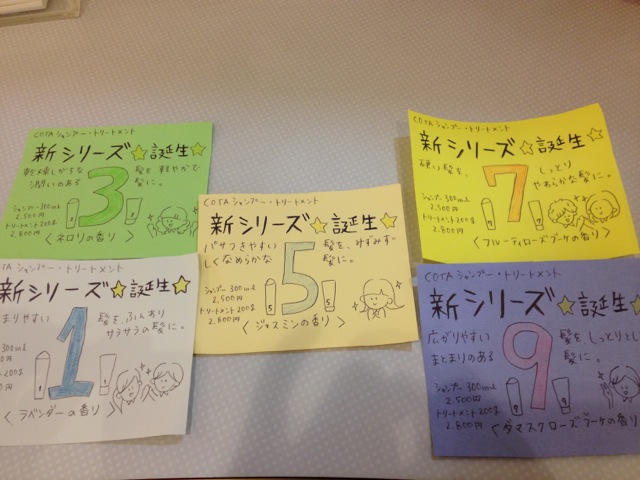 COTA シャンプー・トリートメント
新シリーズ☆誕生☆
乾燥しがちな 髪を軽やかで
潤いのある 3 髪に。
シャンプー 300ml
2,500円
トリートメント 200g
2,800円
〈ネロリの香り〉
COTA シャンプー・トリートメント
新シリーズ☆誕生☆
硬い髪を、 しっとり
7 やわらかな髪に。
シャンプー 300ml
2,500円
トリートメント 200g
2,800円
〈フルーティローズブーケの香り〉
COTA シャンプー・トリートメント
新シリーズ☆誕生☆
パサつきやすい 髪を、みずみず
しくなめらかな 5 髪に。
シャンプー 300ml
2,500円
トリートメント 200g
2,800円
5 5
〈ジャスミンの香り〉
TA シャンプー・トリートメント
新シリーズ☆誕生☆
まりやすい 髪を、ふんわり
1 サラサラの髪に。
300ml
0円
200g
0円
〈ラベンダーの香り〉
COTA シャンプー・トリートメント
新シリーズ☆誕生
広がりやすい 髪をしっとりとし
まとまりのある 9 髪に。
シャンプー 300ml
2,500円
トリートメント 200g
2,800円
9 9
〈ダマスクローズブーケの香り